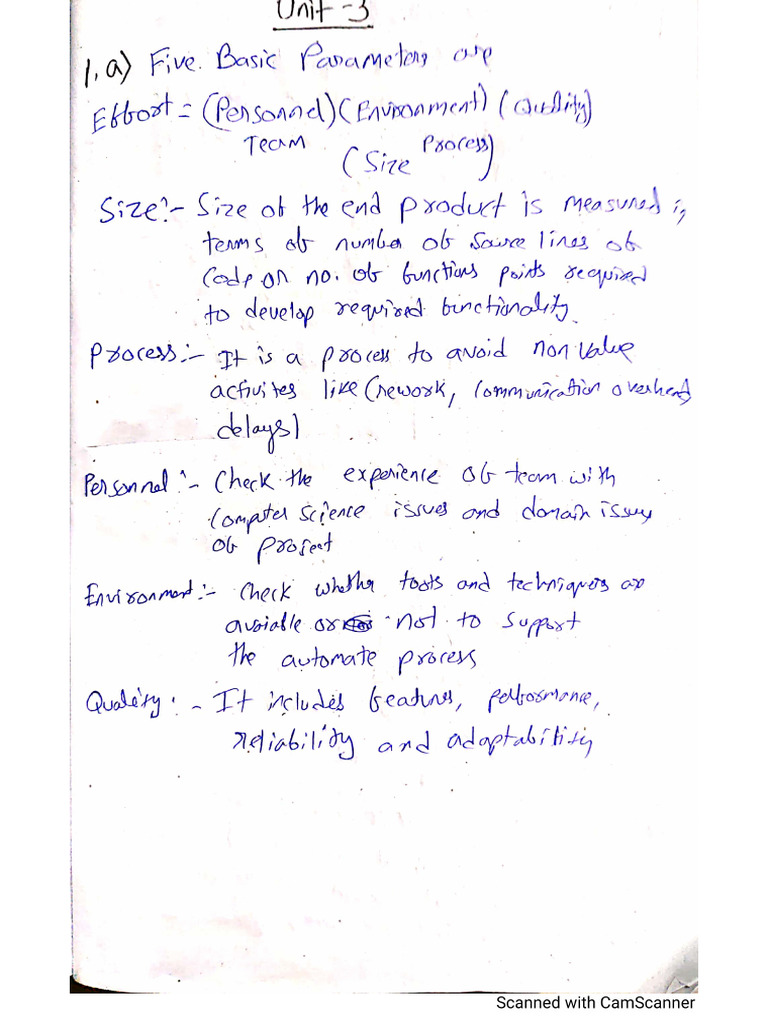 Unit -3
1. a) Five Basic Parameters are
Effort = (Personnel) (Environment) (Quality)
Team
(Size Process)
Size:- Size of the end product is measured in
terms of number of source lines of
Code or no. of functions points required
to develop required functionality
Process:- It is a process to avoid non value
activites like (rework, Communication overhead
delays)
Personnel:- Check the experience of team with
Computer Science issues and domain issues
of project
Environment:- Check whether tools and techniques are
avaiable or not to support
the automate process
Quality:- It includes features, performance,
reliability and adaptability
Scanned with CamScanner